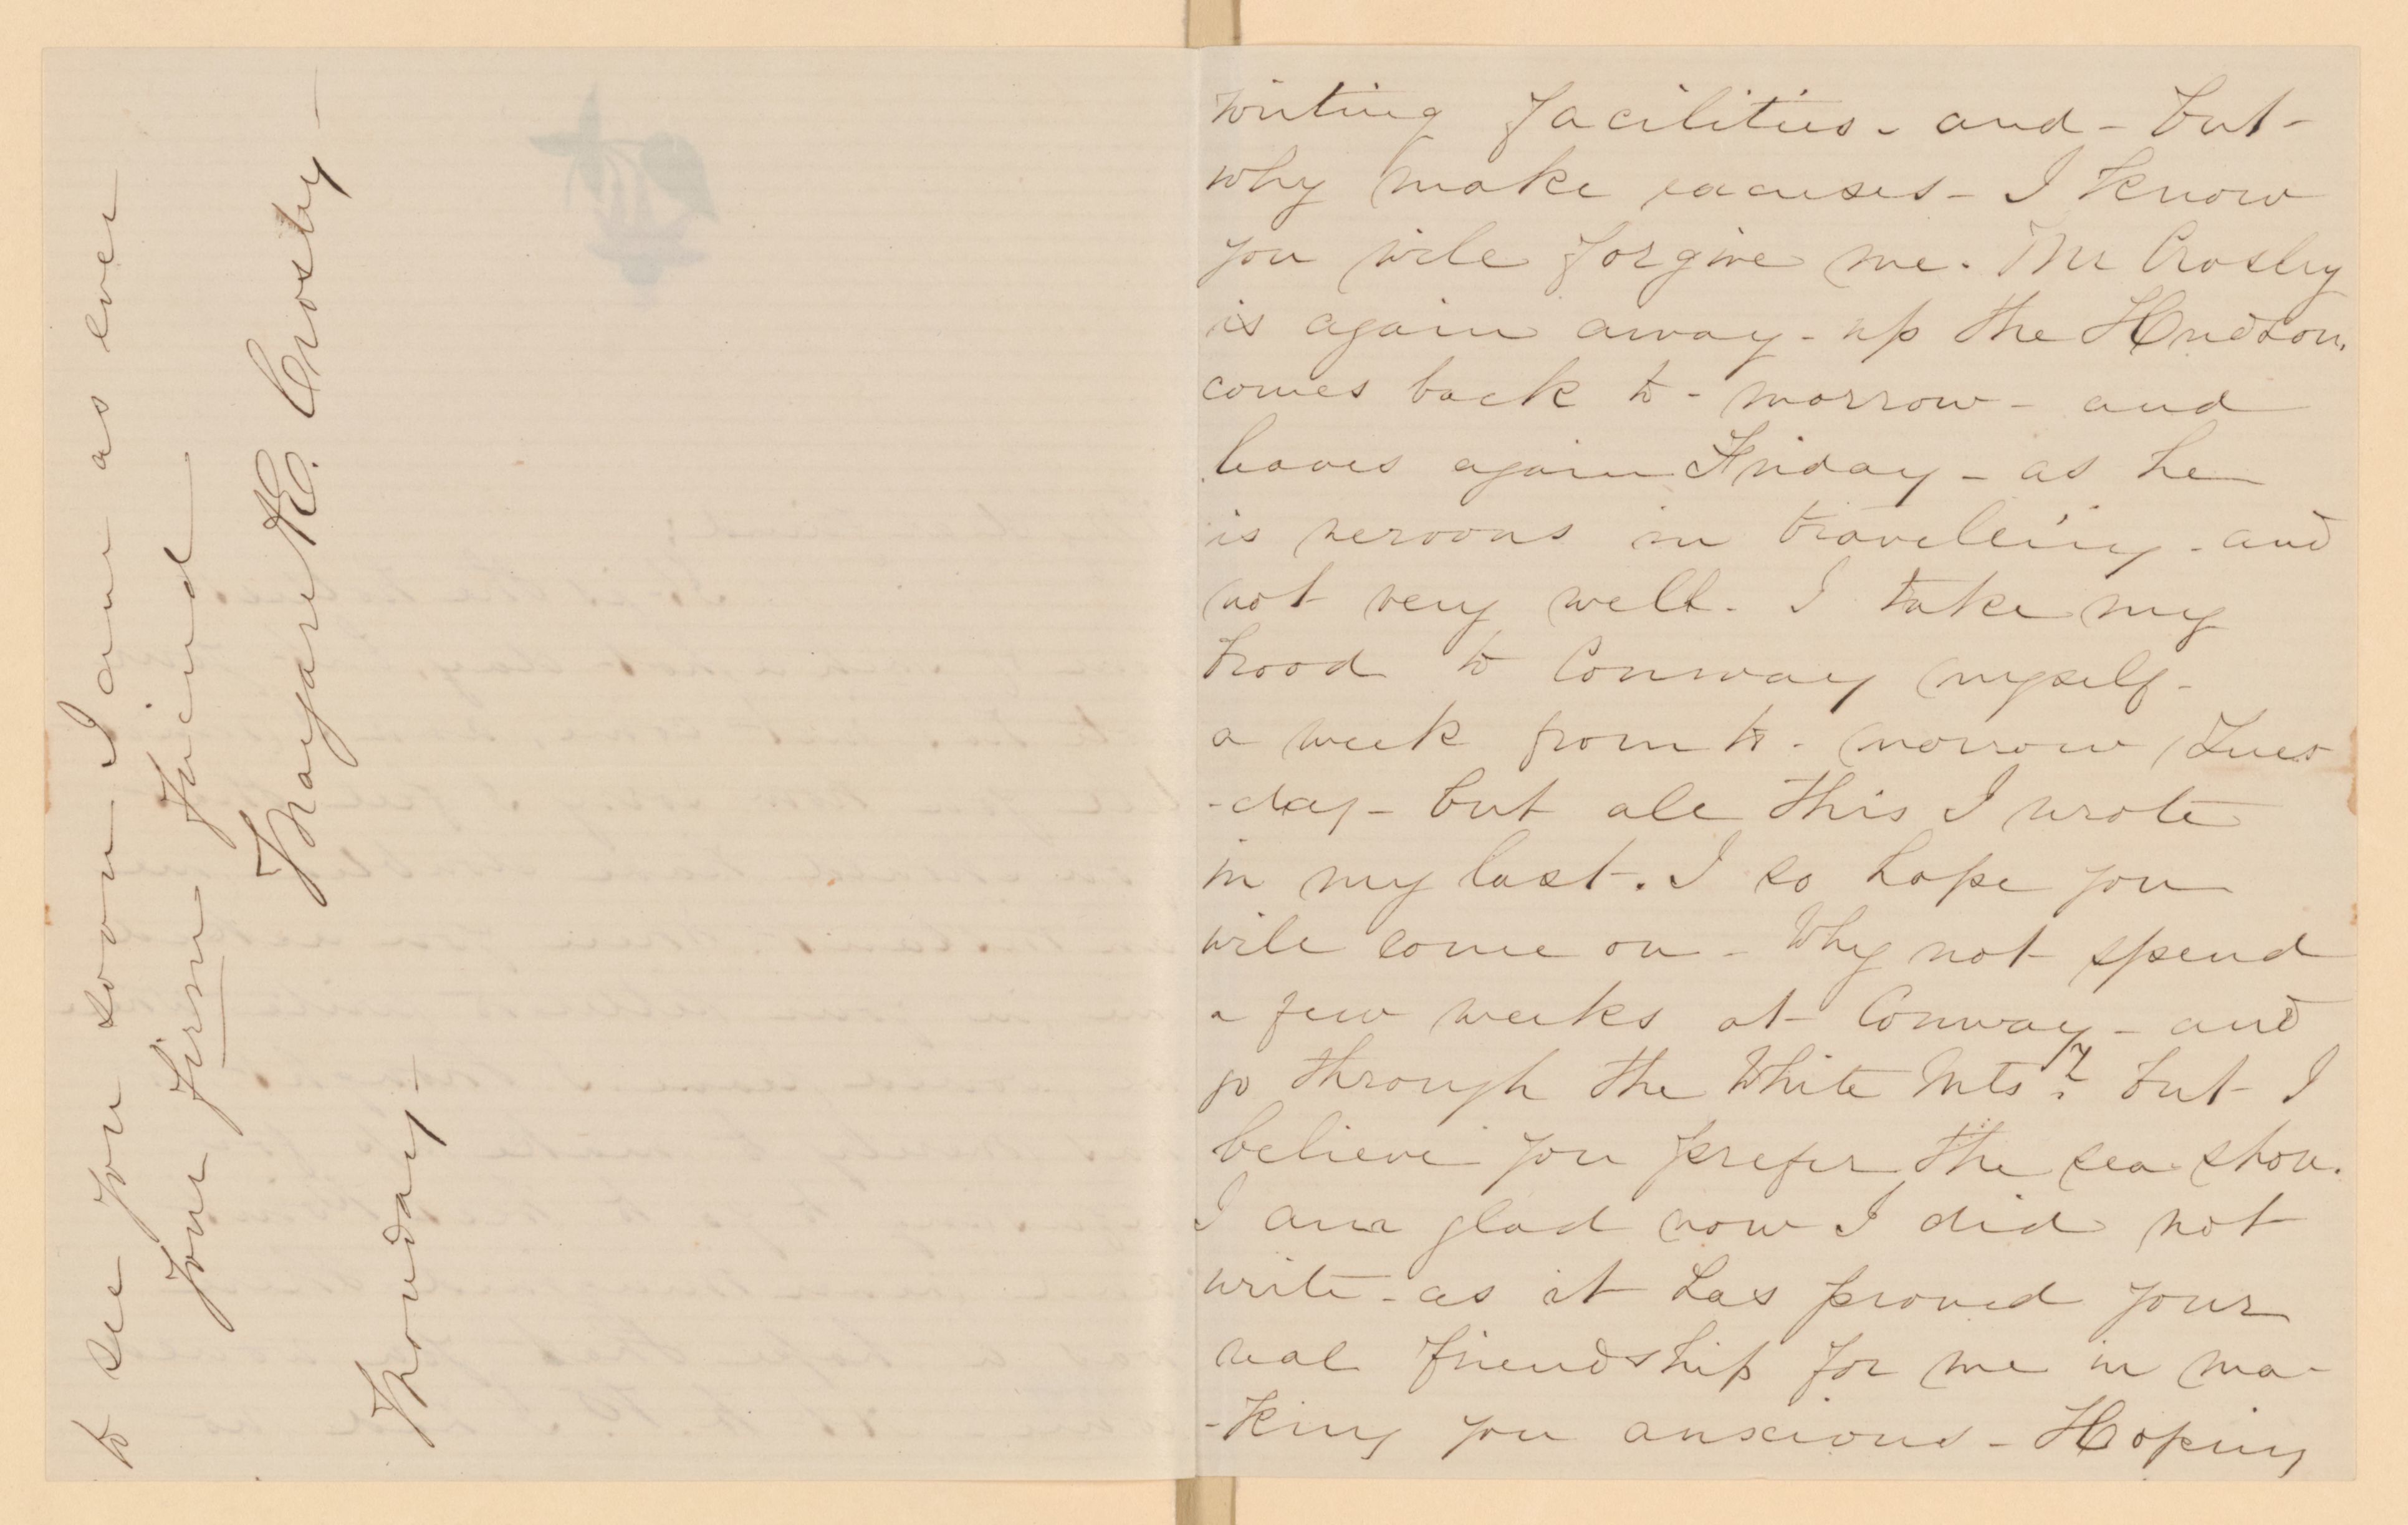 writing facilities - and - but -
why make excuses - I know
you will forgive me. Mr Crosby
is again away - up the Hudson.
comes back to - morrow - and
leaves again Friday - as he
is nervous in traveling - and
not very well. I take my
brood to Conway myself -
a week from to - morrow, Tues
-day - but all this I wrote
in my last. I so hope you
will come on - Why not spend
a few weeks at Conway - and
go through the White Mts? but I
believe you prefer the sea shore.
I am glad now I did not
write - as it has proved your
real friendship for me in ma-
-king you anxious - Hoping
to see you soon - I am as ever
your firm friend
Margaret E. Crosby -
Monday -